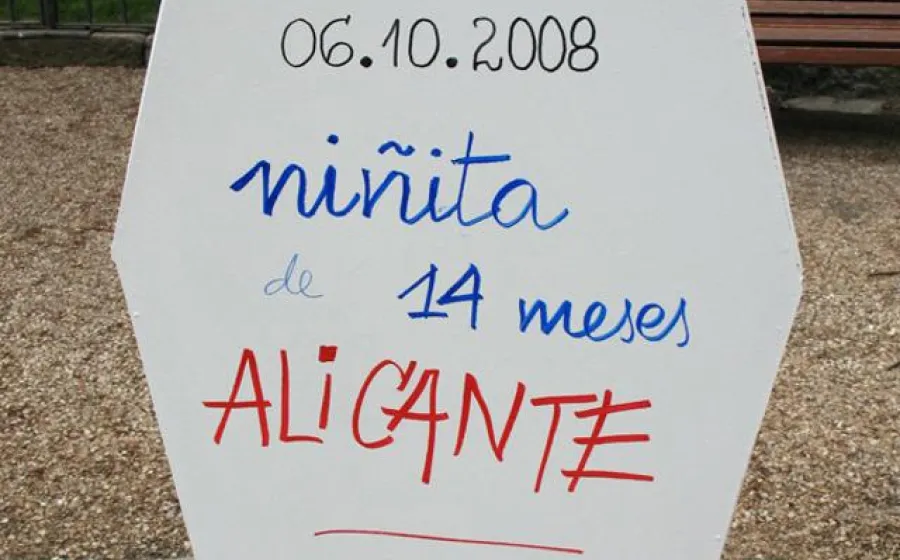 06.10.2008
niñita
de 14 meses
ALiCANTE